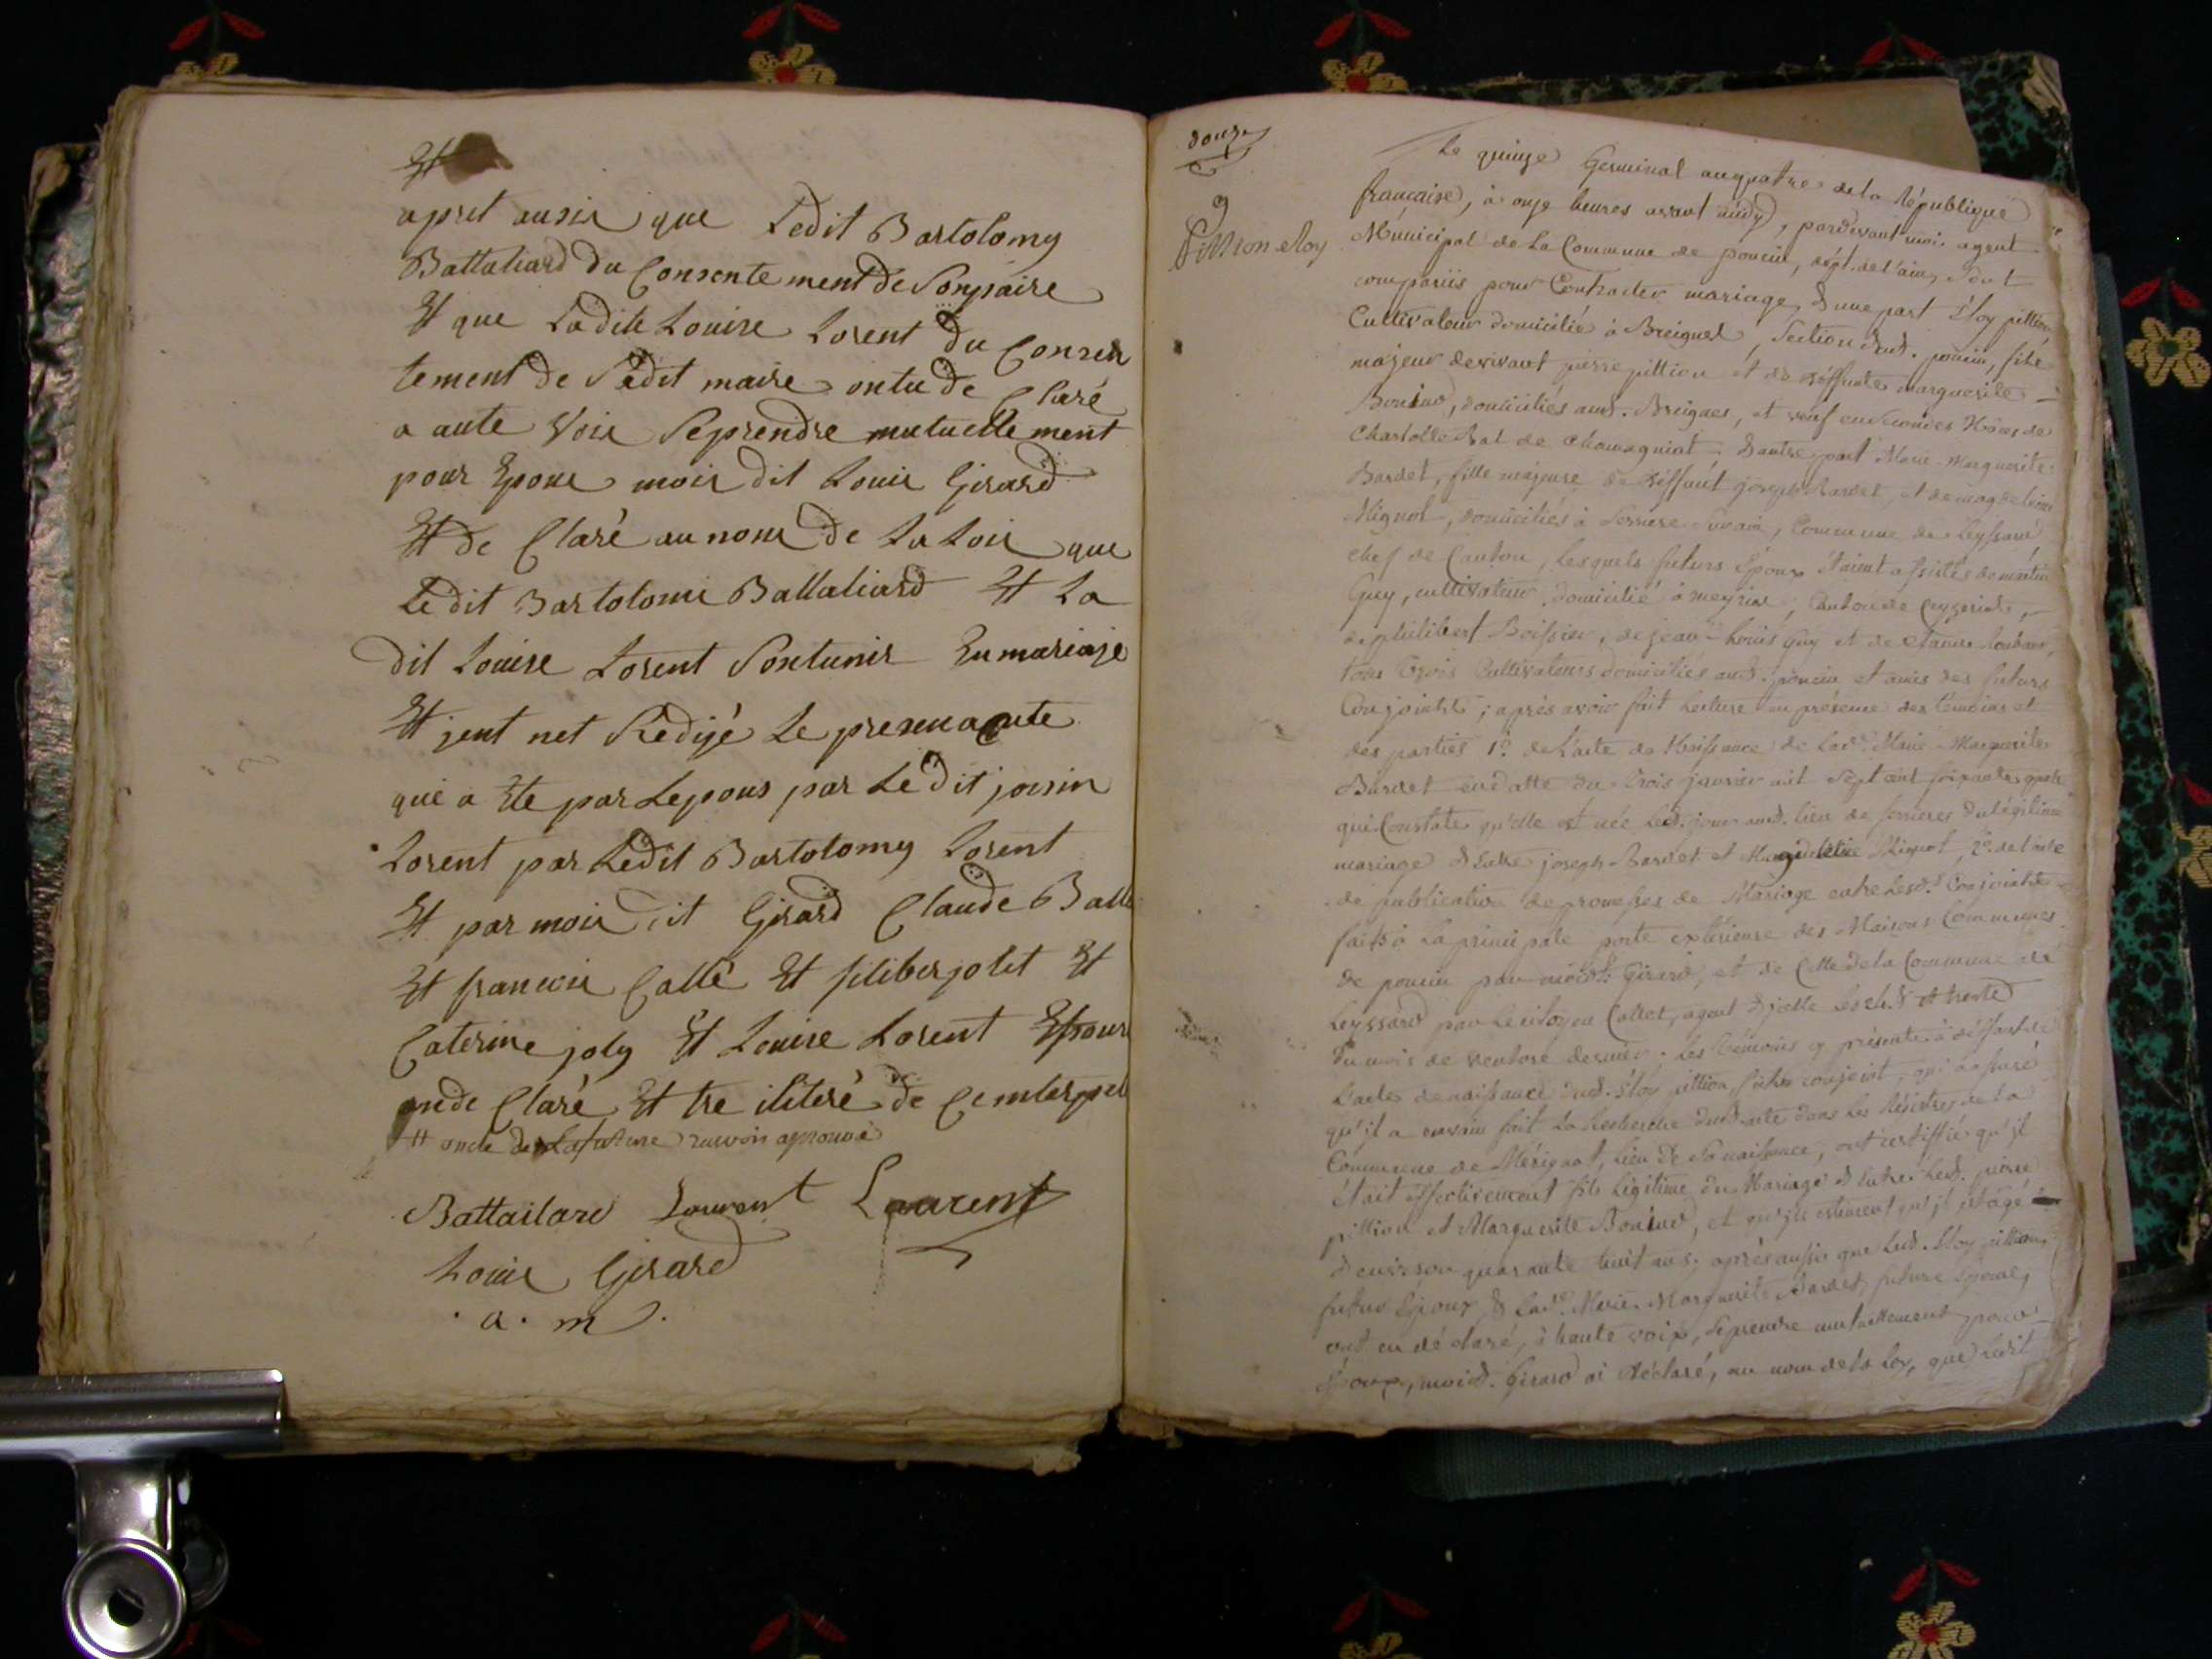 Et
apret ausie que Ledit Bartolomy
Battaliard du Consente ment de Sonpaire
Et que Ladite Louise Lorent du Consen
tement de Sadit maire ontu de Claré
a aute Voie Seprendre mutuelle ment
pour Epoue moie dit Louie Girard
Et de Claré au nom de La Loie que
Ledit Bartolome Battaliard Et La
dit Louise Lorent Sontunis En mariaje
Et jent net Redijé Le presen acute
que a Ete par Lepous par Ledit josin
Lorent par Ledit Bartolomy Lorent
Et par moie dit Girard Claude Batt
Et francoie Callé Et filiber jolit Et
Caterine joly Et Louise Lorent Epour
on de Claré Et tre iliteré de Cemterpel
# oncle de Lafuture renvoi approuvé
Battailard Laurent Laurent
Louie Girard
a. m.
douze
9
Pittion eloy
Le quinze Germinal an quatre de la République
française, à onze heures avant midy, pardevant moi agent
Municipal de La Commune de poncin, dépt. de l'ain, Sont
comparûs pour Contracter mariage, d'une part Éloy pittion
Cultivateur domicilié à Breignel, Section dud. poncin, fils
majeur de vivant pierre pittion et de déffunte marguerite
domiciliés aud. Breignes, et veuf en Secondes Nôces de
Charlotte Rat de Chamagniat. D'autre part Marie Marguerite
Bardet, fille majeure de déffunt joseph Bardet, et de magdeleine
Mignot, domiciliés à Serriere Commune de Leyssard
chef de Canton, Lesquels futurs Époux Étaient assistés de
Guy, cultivateur domicilié à meyriat, Canton de Ceyzeriat,
de philibert Boissieu, de jean Louis Guy et de Claude
tous trois Cultivateurs domiciliés aud. poncin et amis des futurs
Conjoints; après avoir fait Lecture en présence des témoins et
des parties 1.° de L'acte de Naissance de Lad.e Marie Marguerite
Bardet en datte du trois janvier mil Sept cent soixante quatre
qui Constate qu'elle est née Led. jour aud. lieu de serrieres du Légitime
mariage d'Entre joseph Bardet et Magdeleine Mignot, 2.° de l'acte
de publication de promesses de Mariage entre Lesd.s Conjoints
faits à La principale porte extérieure des Maisons Communes
de poncin par moid.t Girard, et de Celle de la Commune de
Leyssard par Le citoyen Callet, agent d'jcelle et trente
du mois de ventose dernier. Les témoins cy présents à déffaut de
L'acte de naissance dud. Éloy pittion futur conjoint, qui a assuré
qu'jl a envain fait La Recherche dud. acte dans Les Régistres de la
Commune de Mérignat, Lieu de Sa naissance, ont certiffié qu'jl
était effectivement fils Légitime du Mariage d'Entre Led. pierre
pittion et Marguerite et qu'jls estiment qu'jl est âgé
d'environ quarante huit ans; après aussi que Led. Éloy pittion
futur Époux & Lad.e Marie Marguerite Bardet, future Épouse,
ont eu déclaré, à haute voix, Seprendre mutuellement pour
Époux, moid. Girard ai déclaré, au nom de la Loy, que Ledit